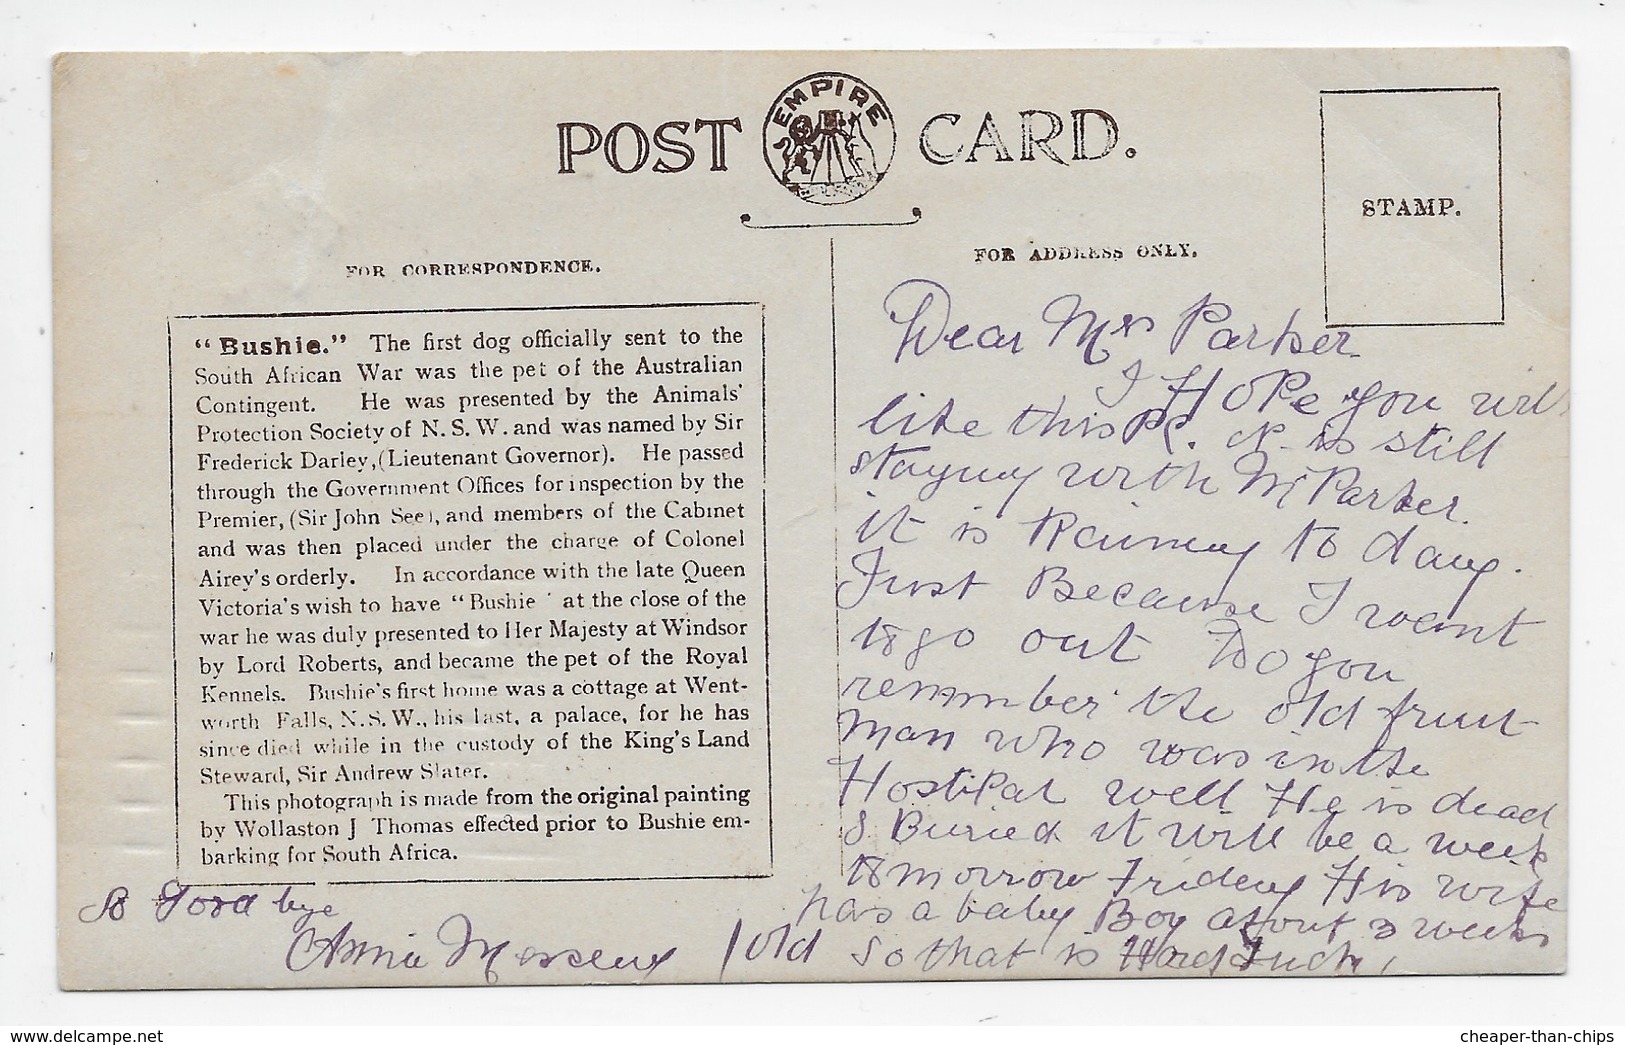 POST CARD.
EMPIRE
STAMP.
FOR CORRESPONDENCE.
FOR ADDRESS ONLY.
"Bushie." The first dog officially sent to the
South African War was the pet of the Australian
Contingent. He was presented by the Animals'
Protection Society of N. S. W. and was named by Sir
Frederick Darley, (Lieutenant Governor). He passed
through the Government Offices for inspection by the
Premier, (Sir John See), and members of the Cabinet
and was then placed under the charge of Colonel
Airey's orderly. In accordance with the late Queen
Victoria's wish to have "Bushie ' at the close of the
war he was duly presented to Her Majesty at Windsor
by Lord Roberts, and became the pet of the Royal
Kennels. Bushie's first home was a cottage at Went-
worth Falls, N. S. W., his last, a palace, for he has
since died while in the custody of the King's Land
Steward, Sir Andrew Slater.
This photograph is made from the original painting
by Wollaston J Thomas effected prior to Bushie em-
barking for South Africa.
Dear Mrs Parker
I HOPe you will
like this PC. is still
staying with Mr Parker.
it is Raining to day.
Just Because I want
to go out Do you
remember the old fruit
man who was in the
HostiPal well He is dead
& Buried it will be a week
tomorrow Friday His wife
has a baby Boy about 3 weeks
old So that is Hard Luck,
So Good bye
Annie
cheaper-than-chips